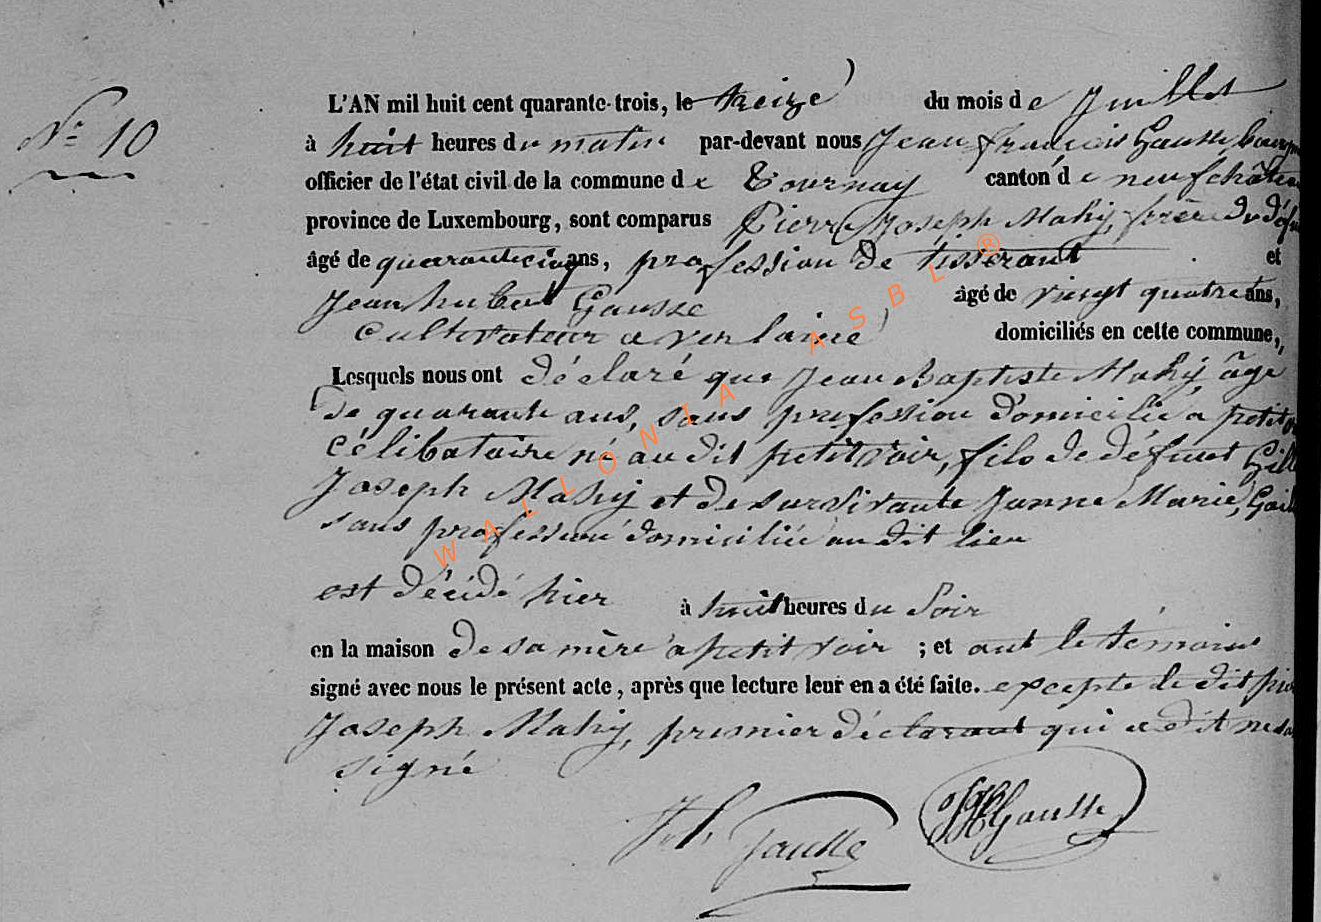 N° 10
L'AN mil huit cent quarante-trois, le treize du mois de Juillet
à huit heures du matin par-devant nous Jean françois Gausse
officier de l'état civil de la commune de Tournay canton de neufchâteau
province de Luxembourg, sont comparus Pierre Joseph Mahy, frère du
âgé de quarantecinq ans, profession de tisserant et
Jean hubert Gausse âgé de vingt quatre ans,
cultivateur a verlaine domiciliés en cette commune,
Lesquels nous ont déclaré que Jean Baptiste Mahy, âgé
de quarante ans, sans profession domicilié a petit
célibataire né au dit petitvoir, fils de défunt
Joseph Mahy et de survivante Janne Marie
sans profession domiciliée au dit lieu
est décidé hier à huit heures du Soir
en la maison de sa mère a petit voir ; et ont le témoins
signé avec nous le présent acte, après que lecture leur en a été faite. excepté le dit
Joseph Mahy, premier déclarant qui a dit ne
signé
Gausse
JH Gausse
WALLONIA ASBL ®